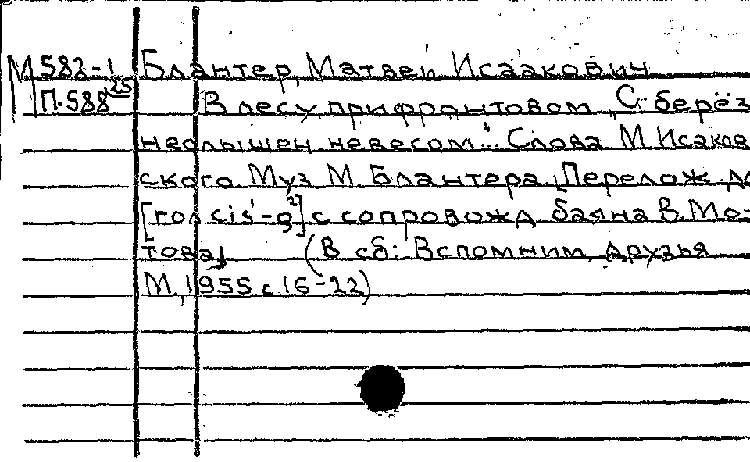 М 582-1 Блантер, Матвей Исаакович
П-588 25 В лесу прифронтовом "С берёз
неслышен, невесом". Слова М. Исаков
ского. Муз. М. Блантера. Перелож. дл
[гол cis¹-g²] с сопровожд. баяна В. Мо-
това] (В сб: Вспомним, друзья
М., 1955 с. 16-22)